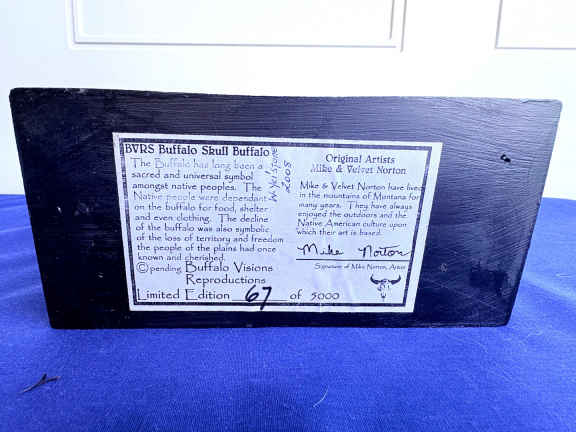 BVRS Buffalo Skull Buffalo
The Buffalo has long been a
sacred and universal symbol
amongst native peoples. The
Native people were dependant
on the buffalo for food, shelter
and even clothing. The decline
of the buffalo was also symbolic
of the loss of territory and freedom
the people of the plains had once
known and cherished.
© pending Buffalo Visions
Reproductions
Limited Edition 67 of 5000
2008
Original Artists
Mike & Velvet Norton
Mike & Velvet Norton have lived
in the mountains of Montana for
many years. They have always
enjoyed the outdoors and the
Native American culture upon
which their art is based.
Mike Norton
Signature of Mike Norton, Artist